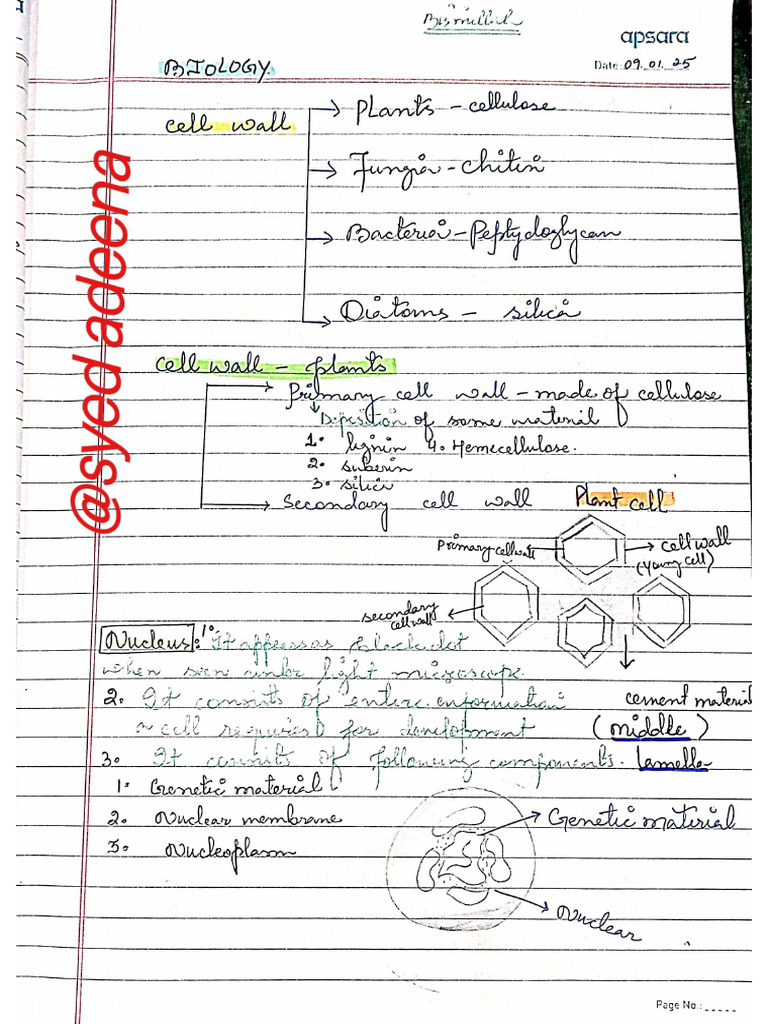 Bismillah
apsara
BIOLOGY
Date: 09.01.25
cell wall
→ Plants - cellulose
→ Fungia - chitin
→ Bacteria - Peptydoglycan
→ Diatoms - silica
@syed adeena
cell wall - plants
→ Primary cell wall - made of cellulose
↓ Deposition of some material
1. lignin 4. Hemecellulose.
2. suberin
3. silica
→ Secondary cell wall
Plant cell
Primary cell wall
→ cell wall
(young cell)
secondary
cell wall
Nucleus: 1. It appears as black dot
when seen under light microscope.
2. It consits of entire information
a cell required for development
cement material
(middle)
lamella
3. It consits of following components.
1. Genetic material
2. Nuclear membrane
3. Nucleoplasm
→ Genetic material
→ Nuclear
Page No.: